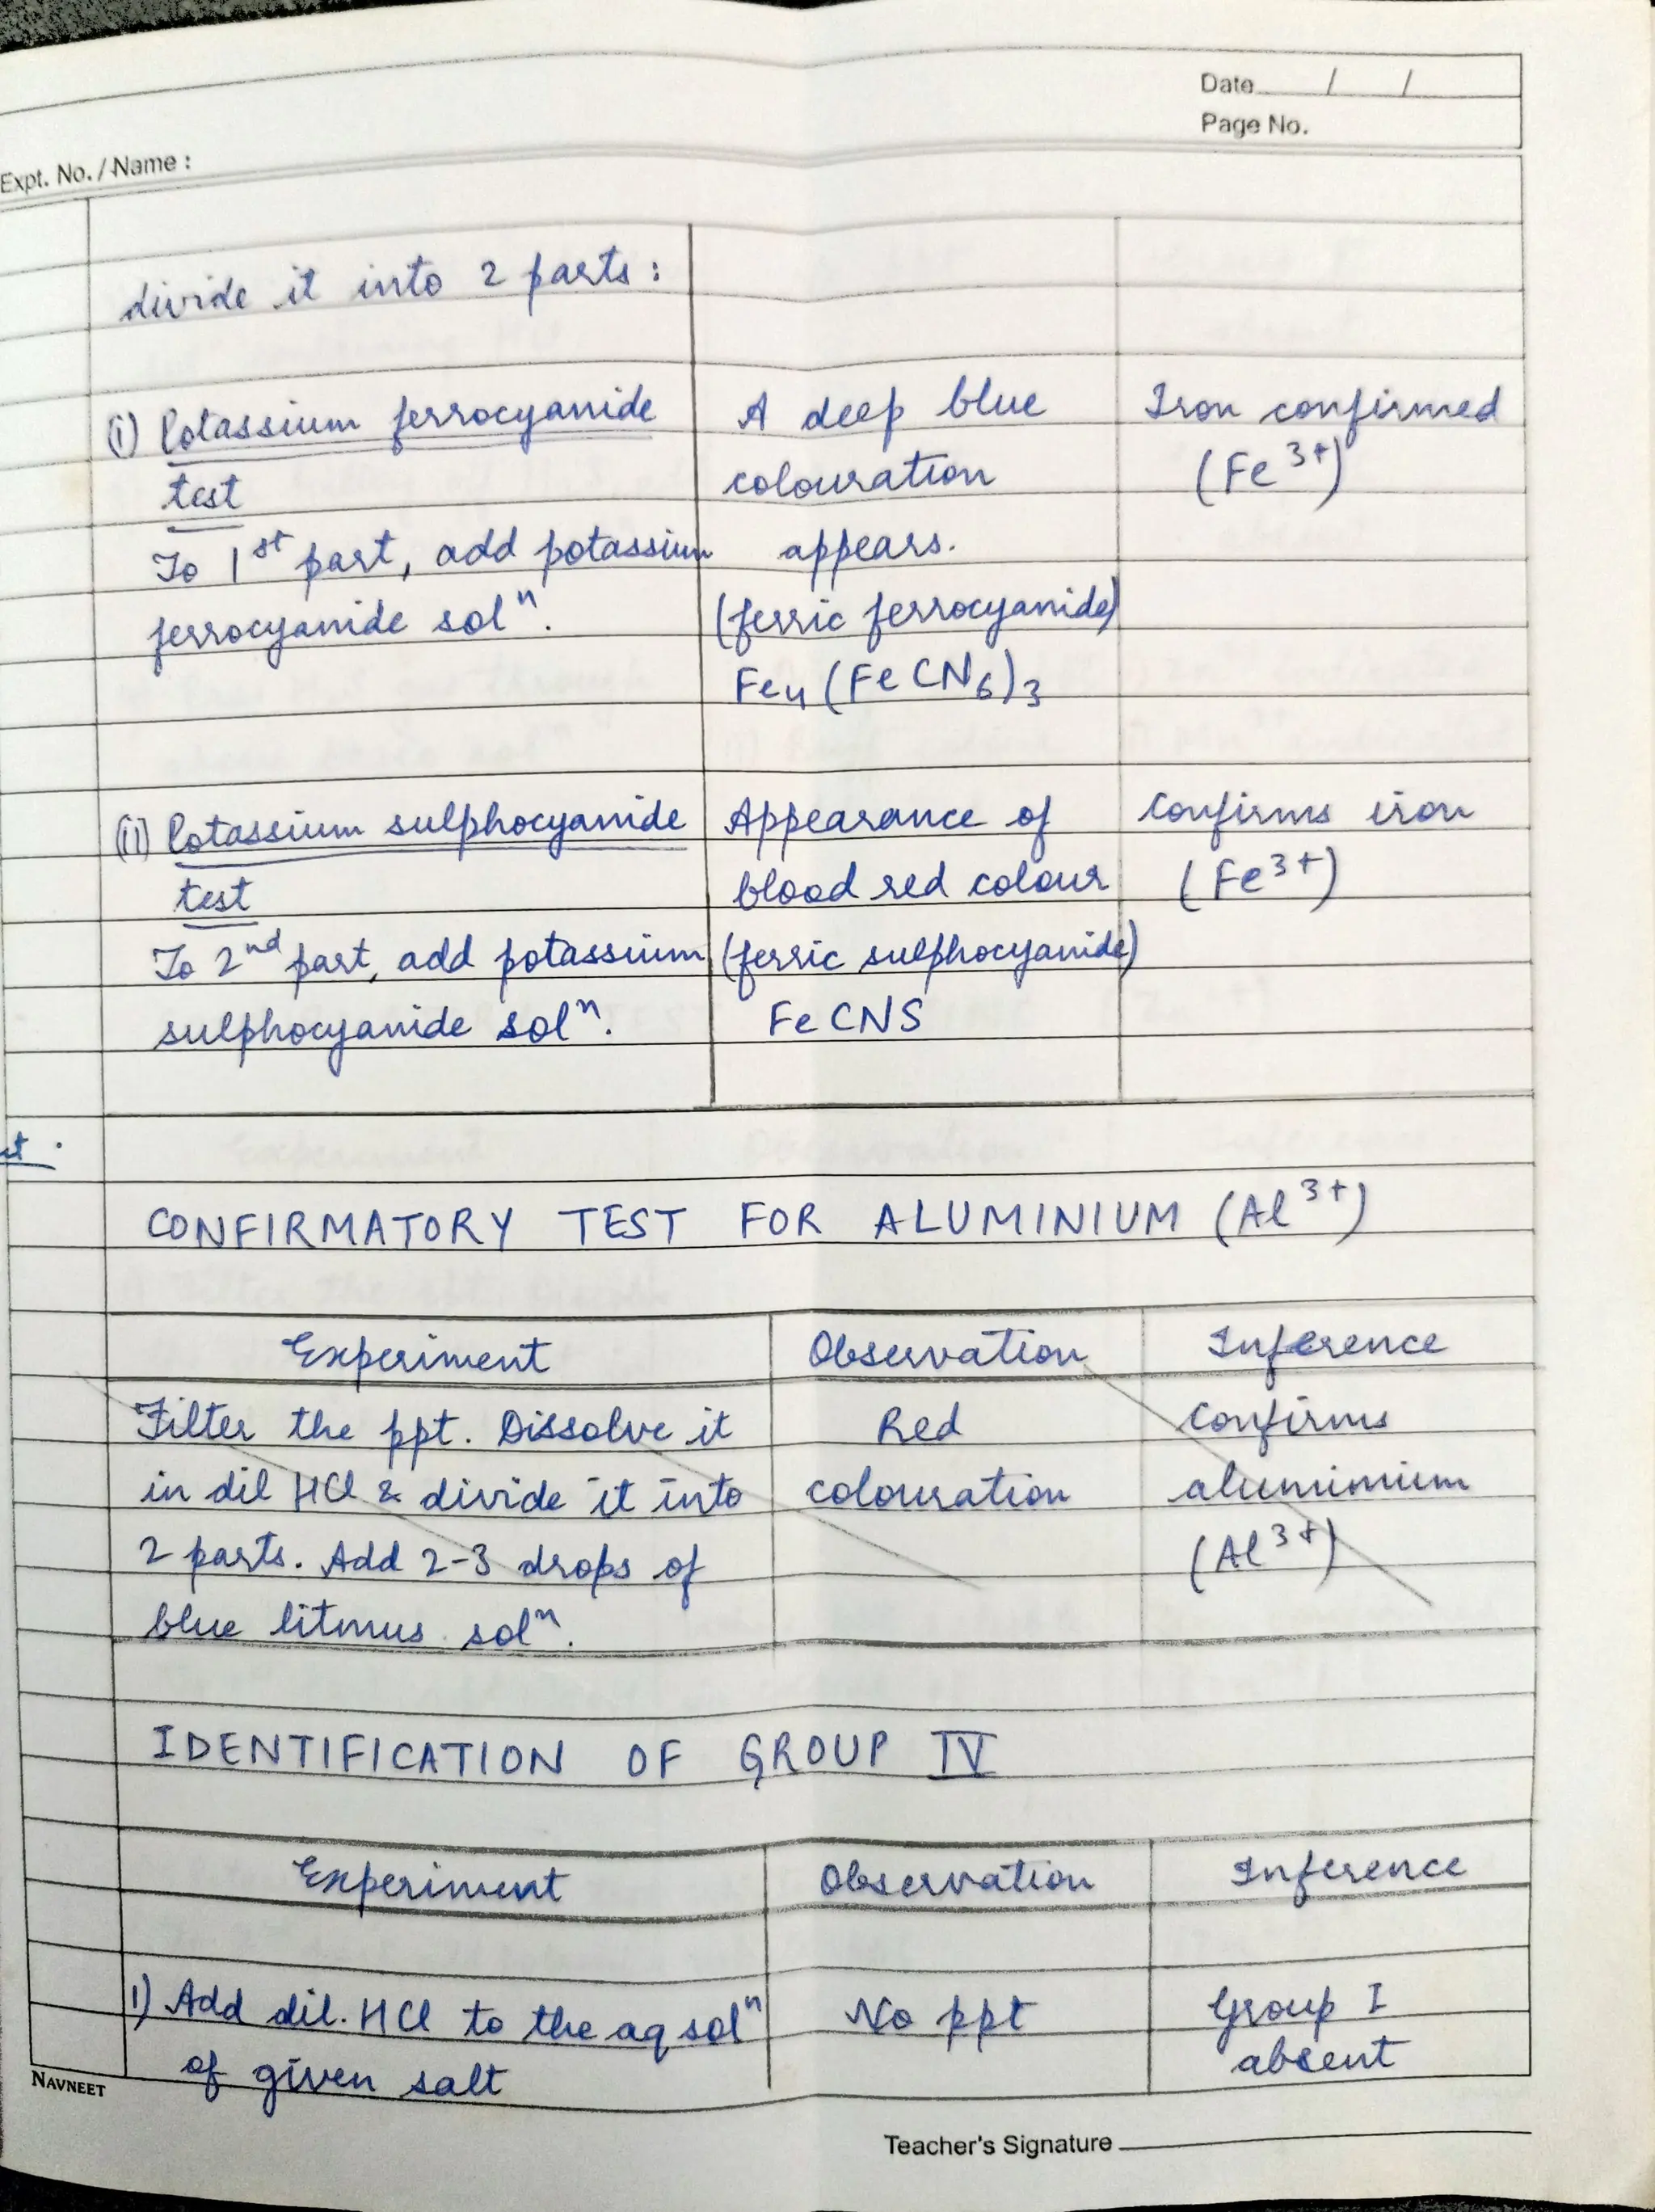 Date / /
Page No.
Expt. No. / Name :
divide it into 2 parts :
(i) Potassium ferrocyanide
test
To 1st part, add potassium
ferrocyanide solⁿ.
A deep blue
colouration
appears.
(ferric ferrocyanide)
Fe₄ (Fe CN₆)₃
Iron confirmed
(Fe³⁺)
(ii) Potassium sulphocyanide
test
To 2nd part, add potassium
sulphocyanide solⁿ.
Appearance of
blood red colour
(ferric sulphocyanide)
Fe CNS
Confirms iron
(Fe³⁺)
CONFIRMATORY TEST FOR ALUMINIUM (Al³⁺)
Experiment
Observation
Inference
Filter the ppt. Dissolve it
in dil HCl & divide it into
2 parts. Add 2-3 drops of
blue litmus solⁿ.
Red
colouration
Confirms
alumimium
(Al³⁺)
IDENTIFICATION OF GROUP IV
Experiment
Observation
Inference
1) Add dil. HCl to the aq solⁿ
of given salt
No ppt
Group I
absent
NAVNEET
Teacher's Signature